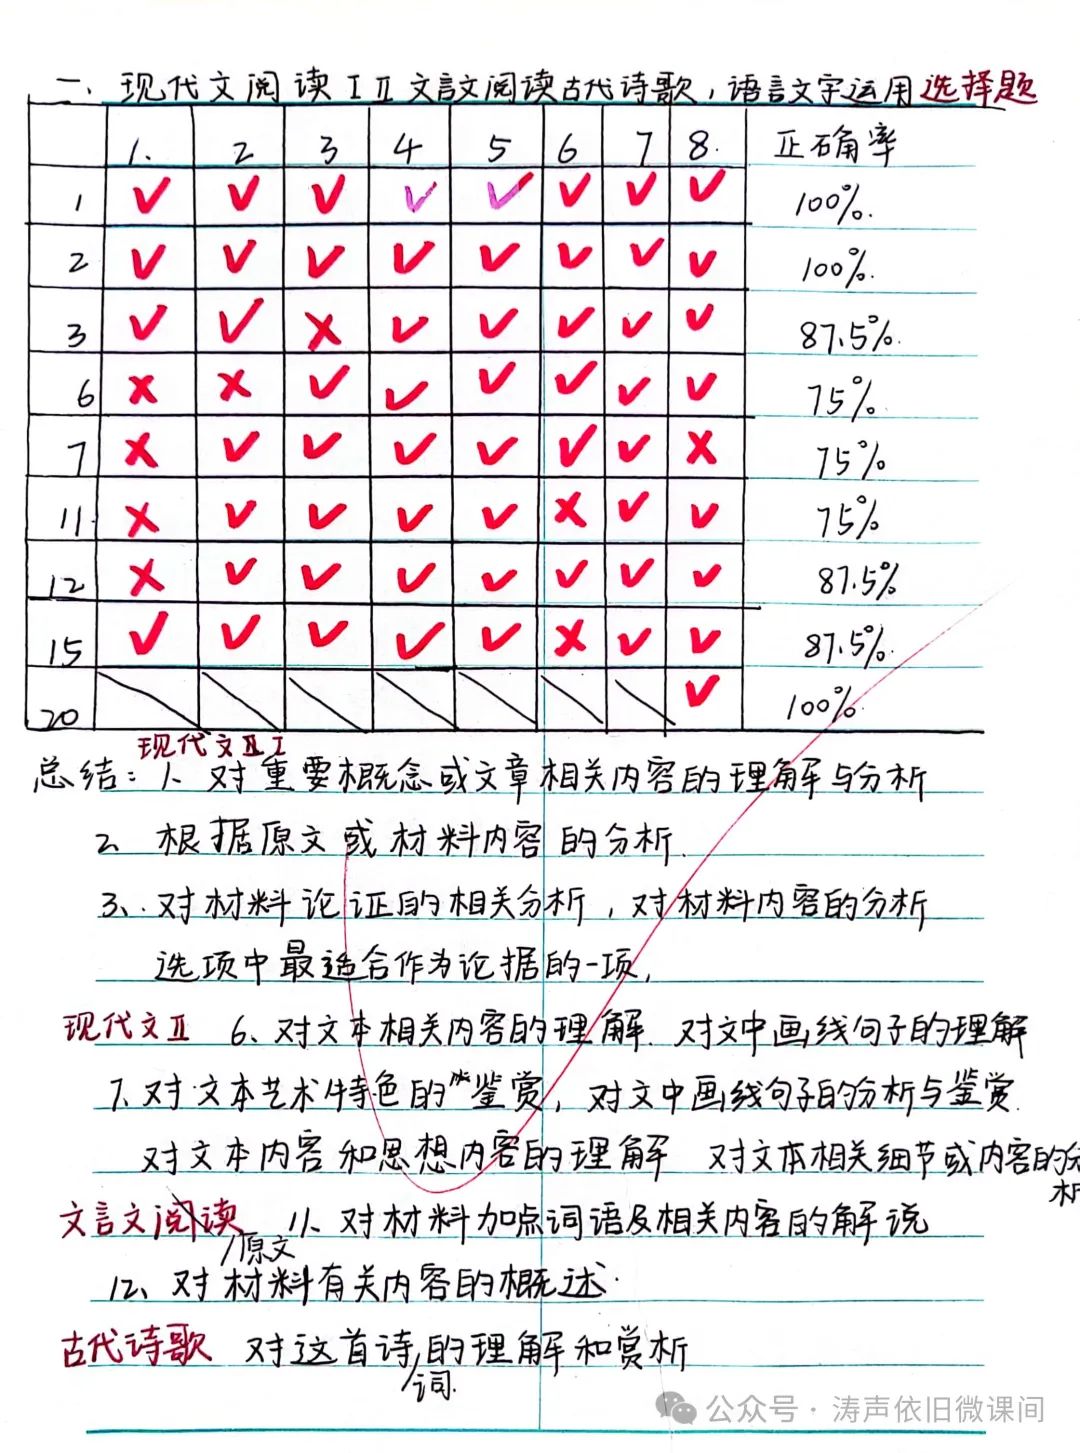 一、现代文阅读ⅠⅡ文言文阅读古代诗歌，语言文字运用选择题
1. 2 3 4 5 6 7 8. 正确率
1 ✓ ✓ ✓ ✓ ✓ ✓ ✓ ✓ 100%.
2 ✓ ✓ ✓ ✓ ✓ ✓ ✓ ✓ 100%.
3 ✓ ✓ ✗ ✓ ✓ ✓ ✓ ✓ 87.5%.
6 ✗ ✗ ✓ ✓ ✓ ✓ ✓ ✓ 75%.
7 ✗ ✓ ✓ ✓ ✓ ✓ ✓ ✗ 75%
11. ✗ ✓ ✓ ✓ ✓ ✗ ✓ ✓ 75%
12 ✗ ✓ ✓ ✓ ✓ ✓ ✓ ✓ 87.5%
15 ✓ ✓ ✓ ✓ ✓ ✗ ✓ ✓ 87.5%.
20 ✓ 100%.
现代文 Ⅰ
总结：1、对重要概念或文章相关内容的理解与分析
2、根据原文或材料内容的分析.
3、对材料论证的相关分析，对材料内容的分析
选项中最适合作为论据的一项，
现代文Ⅱ 6、对文本相关内容的理解. 对文中画线句子的理解
7、对文本艺术特色的鉴赏，对文中画线句子的分析与鉴赏.
对文本内容和思想内容的理解 对文本相关细节或内容的分
析
文言文阅读 11、对材料加点词语及相关内容的解说
/原文
12、对材料有关内容的概述.
古代诗歌 对这首诗的理解和赏析
/词.
公众号·涛声依旧微课间